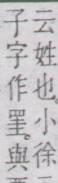 云姓也。小徐
子字作㽞。與